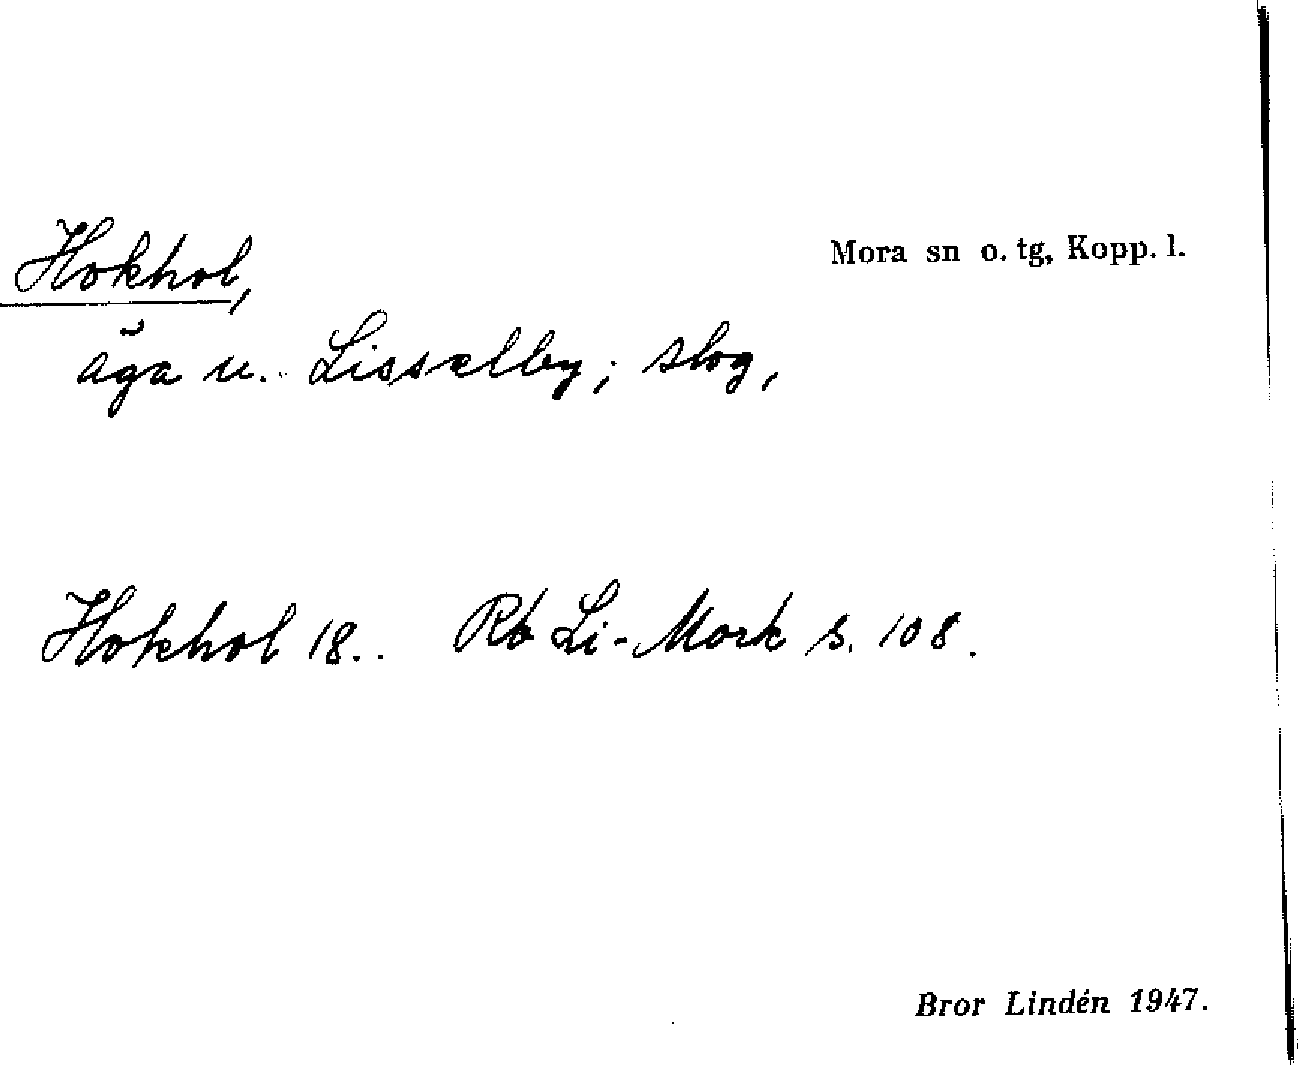 Hokhol,
Mora sn o. tg, Kopp. l.
äga u. Lisselby; slog,
Hokhol 18.. Rb Li-Mork s. 108.
Bror Lindén 1947.